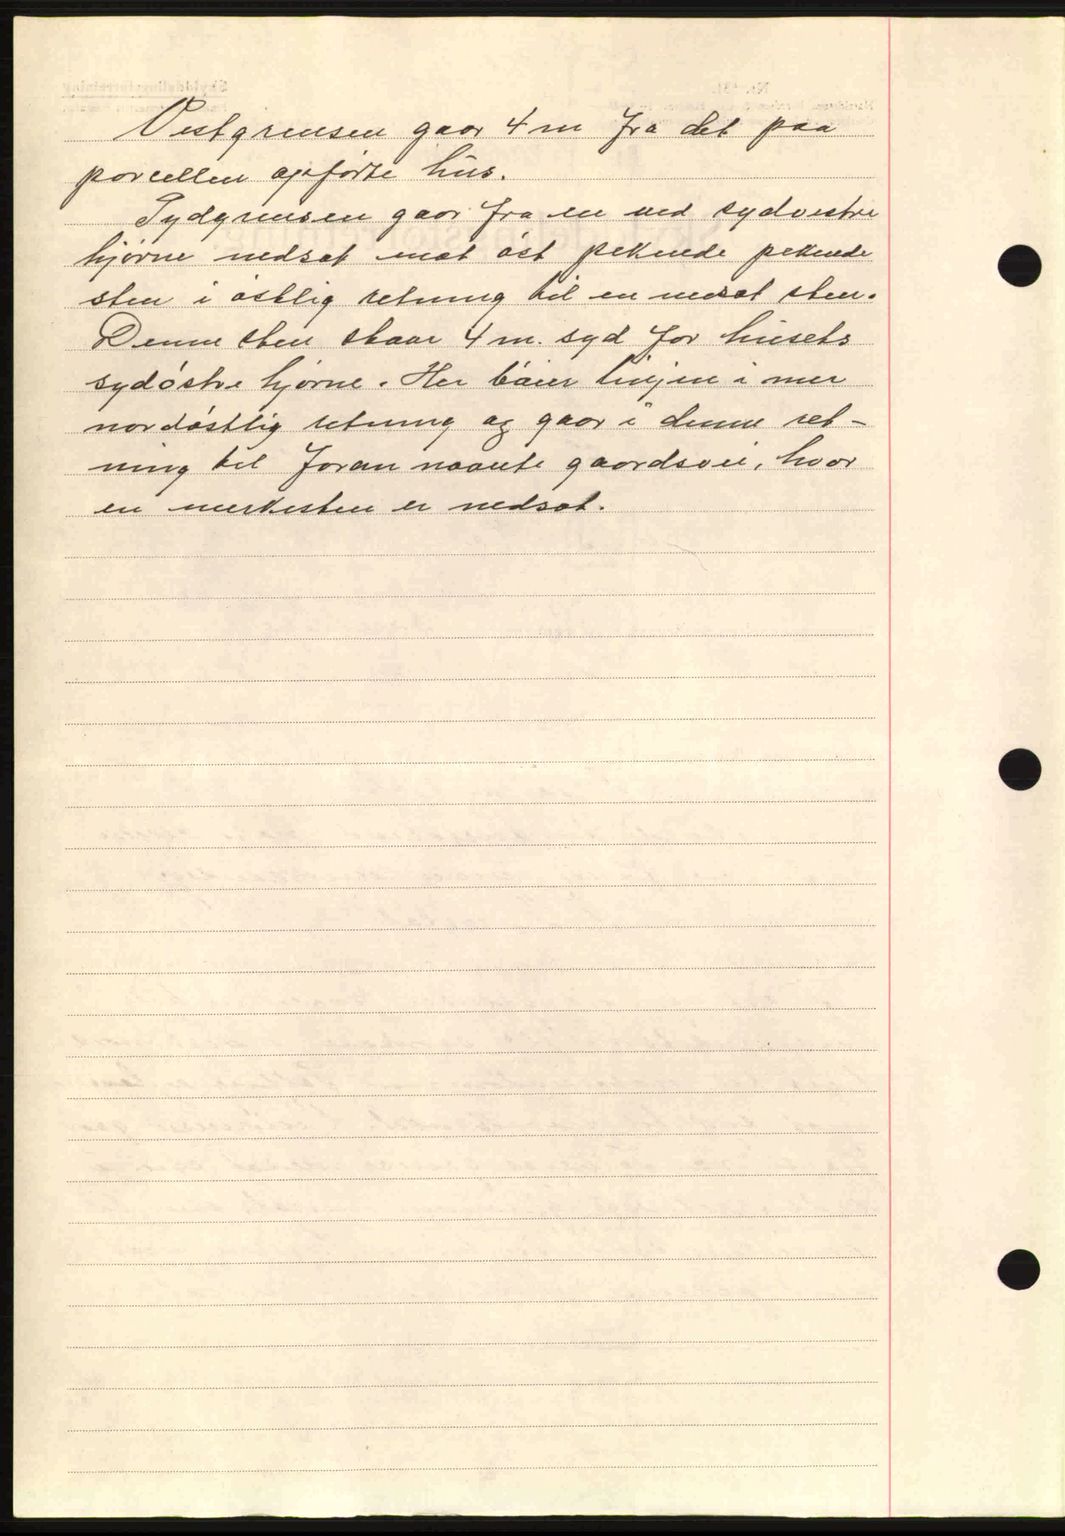 Vestgrensen gaar 4 m fra det paa
porcellen opførte hus.
Sydgrensen gaar fra en ved sydvestre
hjørne nedsat mot øst pekende pekende
sten i østlig retning til en nedsat sten.
Denne sten staar 4 m. syd for husets
sydøstre hjørne. Her bøier linjen i mer
nordøstlig retning og gaar i denne ret-
ning til foran nævnte gaardsvei, hvor
en merkesten er nedsat.